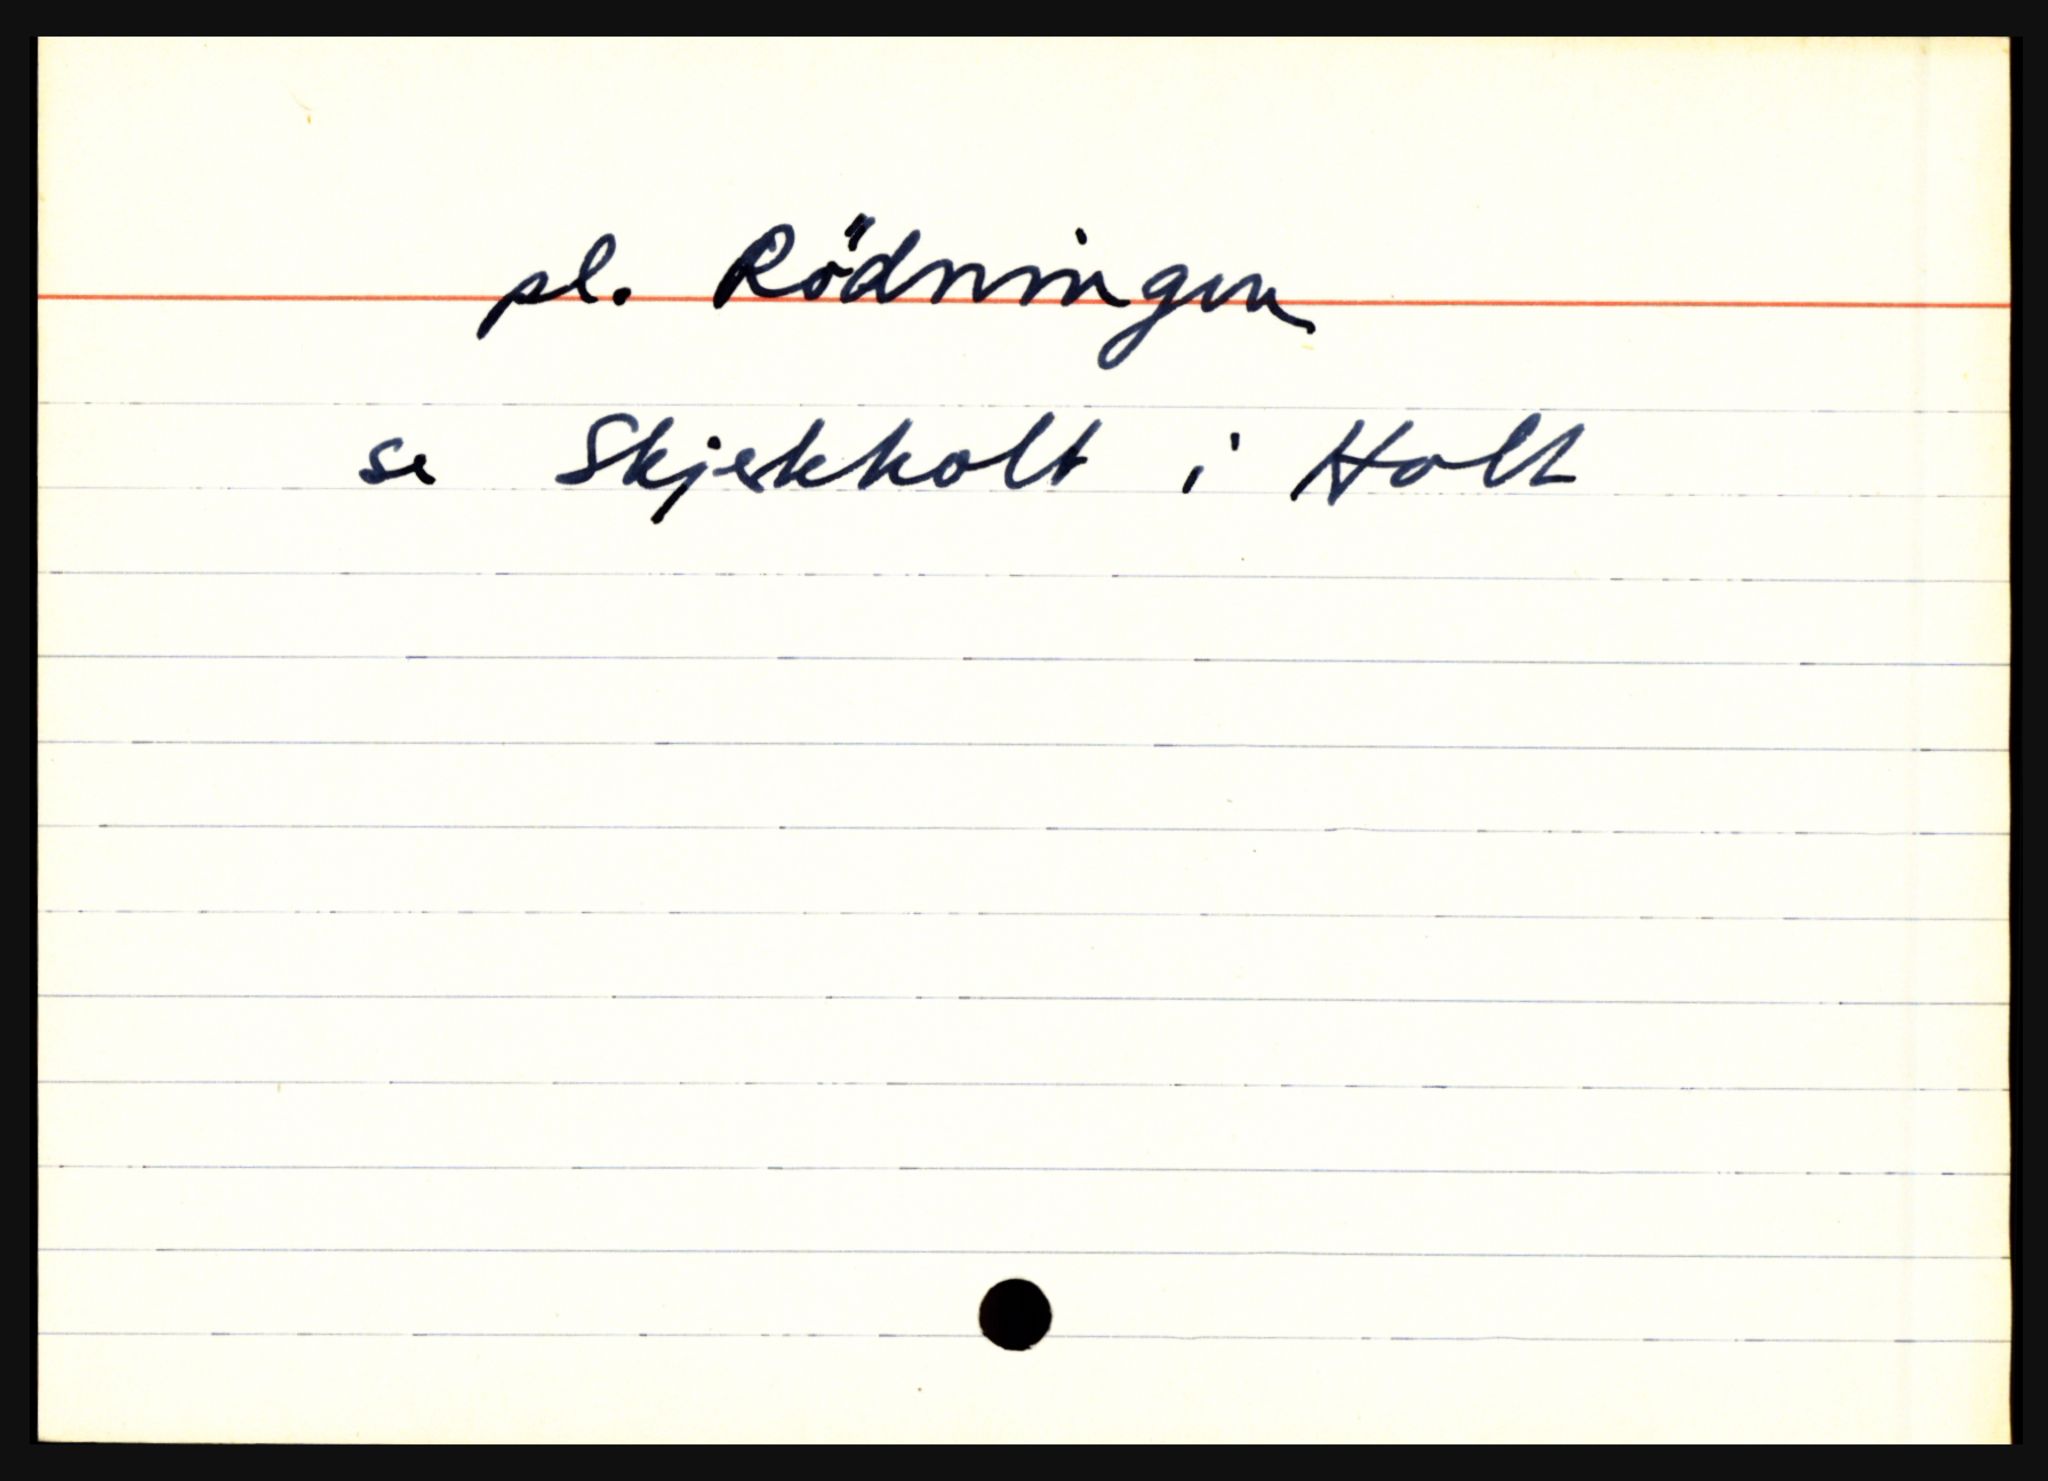 pl. Rödningen
se Skjekholt i Holt